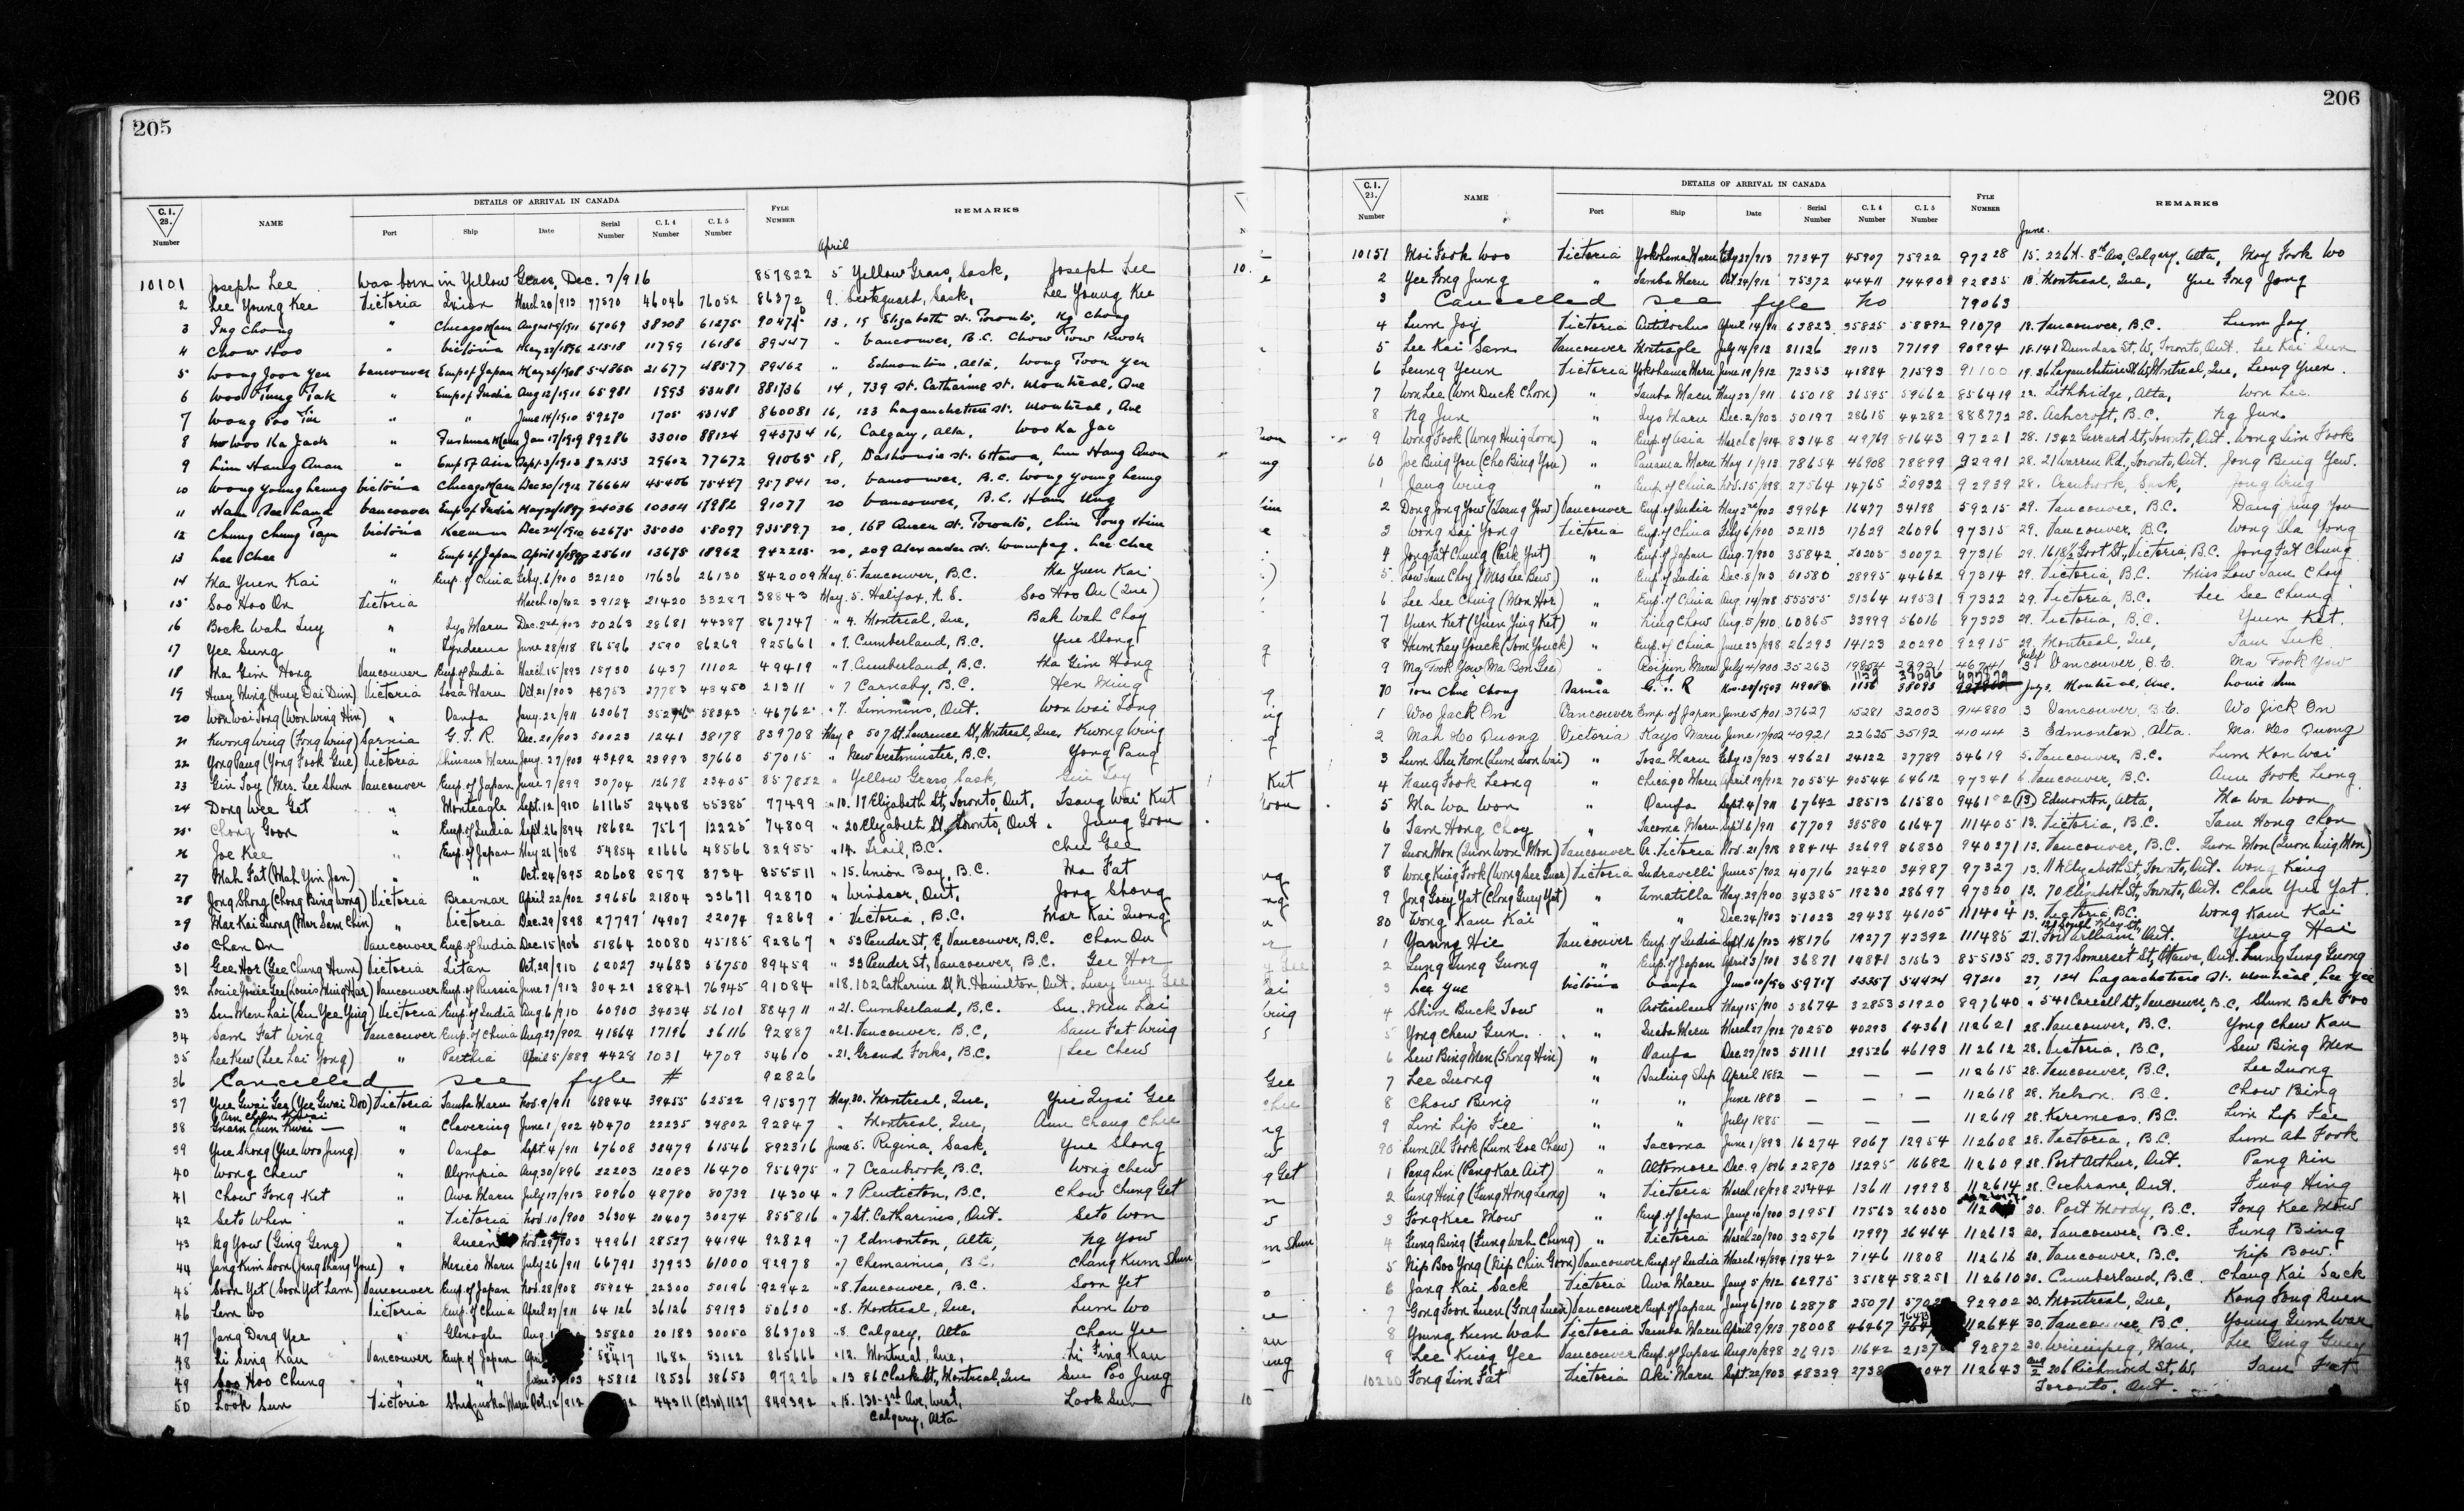 205
C.I. 28. Number
NAME
DETAILS OF ARRIVAL IN CANADA
Port Ship Date Serial Number C.I.4 Number C.I.5 Number
FYLE NUMBER
REMARKS
April
10101 Joseph Lee was born in Yellow Grass, Dec. 7/916 857822 5 Yellow Grass, Sask, Joseph Lee
2 Lee Young Kee Victoria March 20/913 77570 46046 76052 86372 9. Sask, Lee Young Kee
3 Ing Chong " Chicago Maru 67069 38208 61275 13, 19 Elizabeth St. Toronto, Ng Chong
4 Chow Hoo " Victoria May 27/1896 21518 11799 16186 89447 " Vancouver, B.C. Chow Tow Kwok
5 Wong Joon Yen Vancouver Emp of Japan May 26/1908 54865 21677 48577 89462 " Edmonton, Alta, Wong Toon Yen
6 Woo Tung Tak " Emp of India Aug 12/1911 65981 1993 53481 881736 14, 739 St. Catharine St. Montreal, Que
7 Wong Poo Tin " " June 14/1910 59270 1705 53148 860081 16, 123 Lagauchetiere St. Montreal, Que
8 Woo Ka Jack " Fushima Maru Jan 17/1919 89286 33010 88124 943734 16, Calgary, Alta, Woo Ka Jac
9 Lim Hang Quan " Emp of Asia Sept 3/1913 82153 29602 77672 91065 18, Dalhousie St. Ottawa, Lim Hang Quon
10 Wong Young Leung Victoria Chicago Maru Dec 20/1912 76664 45406 75447 957841 20, Vancouver, B.C. Wong Young Leung
11 Ham Vancouver Emp of India May 29/1897 24036 10304 17982 91077 20 Vancouver, B.C. Ham Ung
12 Chung Chung Victoria Keemun Dec 24/1910 62675 35030 58097 935897 20, 168 Queen St. Toronto, Chin Tong Him
13 Lee Chee " Emp of Japan April 3/1898 25611 13675 18962 942215 20, 209 Alexander St. Winnipeg. Lee Chee
14 Ma Yuen Kai " Emp. of China Feby. 6/900 32120 17636 26130 842009 May. 5. Vancouver, B.C. Ma Yuen Kai
15 Soo Hoo On Victoria March 10/902 39124 21420 33287 38843 May. 5. Halifax, N.S. Soo Hoo On (Que)
16 Bock Wah Tuy " Iyo Maru Dec. 2nd/903 50263 28681 44387 867247 " 4. Montreal, Que, Bak Wah Choy
17 Yee Sung " Tyndareus June 28/918 86596 2590 86269 925661 " 7. Cumberland, B.C. Yue Slong
18 Ma Gim Hong Vancouver Emp. of India March 15/893 15730 6437 11102 49419 " 7. Cumberland, B.C. Ma Gim Hong
19 Huey Ming (Huey Dai Dun) Victoria Tosa Maru Oct. 21/903 48753 27783 43450 21311 " 7 Carnaby, B.C. Hen Ming
20 Won Wai Tong (Won Wing Hin) " Oanfa Jany. 22/911 63067 58343 46762 " 7. Timmins, Ont. Won Wai Long
21 Kwong Wing (Fong Wing) Sarnia G.T.R. Dec. 20/903 50023 1241 38178 839708 May 8 507 St. Lawrence St, Montreal, Que, Kwong Wing
22 Yong Pang (Yong Fook Gue) Victoria Shinano Maru Jany. 27/903 43492 23993 37660 57015 " New Westminster, B.C. Yong Pang
23 Gin Toy (Mrs. Lee Shun Vancouver Emp. of Japan June 7/899 30704 12678 23405 857822 " Yellow Grass, Sask, Gin Toy
24 Dong Wee Get " Monteagle Sept. 12/910 61165 24408 55385 77499 " 10. 17 Elizabeth St, Toronto, Ont. Tsang Wai Kut
25 Chong Goon " Emp. of India Sept. 26/894 18682 7567 12225 74809 " 20 Elizabeth St, Toronto, Ont. Jung Goon
26 Joe Kee " Emp. of Japan May 26/908 54854 21666 48566 82955 " 14. Trail, B.C. Chu Gee
27 Mah Fat (Mah Yin Jan) " " Oct. 24/895 20608 8578 8734 855511 " 15. Union Bay, B.C. Ma Fat
28 Jong Shong (Chong Bing Wong) Victoria Braemar April 22/902 39656 21804 33671 92870 " Windsor, Ont. Jong Shong
29 Mar Kai Quong (Mar Sam Chin) " Victoria Dec. 29/898 27797 14907 22074 92869 " Victoria, B.C. Mar Kai Quong
30 Chan On Vancouver Emp. of India Dec. 15/906 51864 20080 45185 92867 " 53 Pender St, E, Vancouver, B.C. Chan On
31 Gee Hor (Gee Chung Hum) Victoria Titan Oct. 29/910 62027 34683 56750 89459 " 33 Pender St, Vancouver, B.C. Gee Hor
32 Louie Vancouver Emp. of Russia June 7/913 80421 28841 76945 91084 " 18. 102 Catharine St N. Hamilton, Ont. Luey Guey Gee
33 Su Men Lai (Su Yee Ying) Victoria Emp. of India Aug. 6/910 60900 34034 56101 884711 " 21. Cumberland, B.C. Su Men Lai
34 Sam Fat Wing Vancouver Emp. of China Aug. 27/902 41864 17196 36116 92887 " 21. Vancouver, B.C. Sam Fat Wing
35 Lee Kew (Lee Lai Jong) " Parthia April 5/889 4428 1031 4709 54610 " 21. Grand Forks, B.C. Lee Chew
36 Cancelled see fyle # 92826
37 Yue Gwai Gee (Yee Gwai Doo) Victoria Tamba Maru Nov. 9/911 68844 39455 62522 915377 May. 30. Montreal, Que, Yue Gee
38 Chun Kwai — " Clavering June 1/902 40470 22235 34802 92847 " Montreal, Que, Aun Chang Chee
39 Yue Shong (Yue Woo Jung) " Oanfa Sept. 4/911 67608 38479 61546 892316 June 5. Regina, Sask, Yue Slong
40 Wong Chew " Olympia Aug. 30/896 22203 12083 16470 956975 " 7 Cranbrook, B.C. Wong Chew
41 Chow Fong Kit " Awa Maru July 17/913 80960 48780 80739 14304 " 7 Penticton, B.C. Chow Chung Get
42 Seto When " Victoria Nov. 10/900 36304 20407 30274 855816 " 7 St. Catharines, Ont. Seto Won
43 Ng Yow (Ging Geng) " Queen Nov. 29/903 49961 28527 44194 92829 " 7 Edmonton, Alta, Ng Yow
44 Jang Kim Soon (Jang Shang Youe) " Mexico Maru July 26/911 66791 37933 61000 92978 " 7 Chemainus, B.C. Chang Kum Shun
45 Soon Yet (Soon Yet Lam) Vancouver Emp. of Japan Nov. 28/908 55924 22300 50196 92942 " 8. Vancouver, B.C. Soon Yet
46 Lem Wo Victoria Emp. of China April 27/911 64126 36126 59193 50630 " 8. Montreal, Que, Lum Wo
47 Jang Dang Yee " Glenogle Aug. 35820 20183 30050 863708 " 8 Calgary, Alta Chan Yee
48 Li Sing Kau Vancouver Emp. of Japan 58417 1682 53122 865666 " 12. Montreal, Que, Li Fing Kau
49 Soo Hoo Chung " " 45812 18536 38653 97226 " 13 86 Clark St, Montreal, Que Sue Poo Jung
50 Look Sun Victoria Shidzuoka Maru Oct. 12/912 44311 (C.I.30) 1127 849392 " 15. 130-3rd Ave, West, Look Sun
Calgary, Alta
206
C.I. 28. Number
NAME
DETAILS OF ARRIVAL IN CANADA
Port Ship Date Serial Number C.I.4 Number C.I.5 Number
FYLE NUMBER
REMARKS
June.
10151 Moi Fook Woo Victoria Yokohama Maru Feby 27/913 77347 45907 75922 97228 15. 226A. 8th Ave, Calgary, Alta, Moy Fook Wo
2 Yee Fong Jung " Tamba Maru Oct. 24/912 75372 44411 92835 18. Montreal, Que, Yue Fong Jong
3 Cancelled see fyle No 79063
4 Lum Joy Victoria Antilochus April 14/911 63823 35825 58892 91079 18. Vancouver, B.C. Lum Jay
5 Lee Kai Sam Vancouver Monteagle July 14/913 81126 29113 77199 90994 18. 141 Dundas St, W, Toronto, Ont. Lee Kai Sun
6 Leung Yeun Victoria Yokohama Maru June 19/912 72353 41884 71593 91100 19. 26 Lagauchetiere St W, Montreal, Que, Leong Yuen.
7 Won Lee (Won Duck Choon) " Tamba Maru May 23/911 65018 36595 59662 856419 22. Lethbridge, Alta, Won Lee.
8 Ng Jun " Iyo Maru Dec. 2/903 50197 28615 44282 888772 28. Ashcroft, B.C. Ng Jun.
9 Wong Fook (Wong Hing Loon) " Emp. of Asia March 8/914 83148 49769 81643 97221 28. 1342 Gerrard St, Toronto, Ont. Wong Sim Fook
60 Joe Bing You (Cho Bing You) " Panama Maru May 1/913 78654 46908 78899 92991 28. 21 Warren Rd, Toronto, Ont. Jong Bing Yew.
1 Jang Wing " Emp. of China Nov. 15/898 27564 14765 20932 92939 28. Sask, Jong Wing
2 Dong Jong Yow (Tsang Yow) Vancouver Emp. of India May 2nd/902 39968 16477 34198 59215 29. Vancouver, B.C. Dang Jing You
3 Wong Sai Yong Victoria Emp. of China Feby 6/900 32113 17629 26096 97315 29. Vancouver, B.C. Wong Sha Yong
4 Jong Fat Chung (Park Yut) " Emp. of Japan Aug. 7/900 35842 20205 30072 97316 29. 1618½ Foot St, Victoria, B.C. Jong Fat Chung
5 Low Tam Choy (Mrs Lee Bew.) " Emp. of India Dec. 8/903 50580 28995 44662 97314 29. Victoria, B.C. Miss Low Tam Choy
6 Lee See Ching (Mon Hor) " Emp. of China Aug. 14/908 55555 31364 49531 97322 29. Victoria, B.C. Lee See Chung
7 Yuen Ket (Yuen Ying Kit) " Ning Chow Aug. 5/910 60865 33999 56016 97323 29. Victoria, B.C. Yuen Ket.
8 Hum Key Youck (Tom Youck) " Emp. of China June 23/898 26293 14123 20290 92915 29. Montreal, Que, Tam Suk
9 Ma Fook Yow (Ma Bon Gee) " Riojun Maru July 4/900 35263 19854 28921 46741 July 3 Vancouver, B.C. Ma Fook Yow
70 Tom Chue Chong Sarnia G.T.R Nov. 28/1903 1139 38096 July 3, Montreal, Que. Louie Sun
1 Woo Jack On Vancouver Emp. of Japan June 5/901 37627 15281 32003 914880 3 Vancouver, B.C. Wo Jick On
2 Mah Ho Quong Victoria Kayo Maru June 17/902 40921 22625 35192 41044 3 Edmonton, Alta. Ma Ho Quong
3 Lum Shu Nom (Lum Lion Wai) " Tosa Maru Feby 13/903 43621 24122 37789 54619 5. Vancouver, B.C. Lum Kon Wai
4 Haug Fook Leong " Chicago Maru April 19/912 70554 40544 64612 97341 6. Vancouver, B.C. Aun Fook Leong
5 Ma Wa Won " Oanfa Sept. 4/911 67642 38513 61580 946182 (13) Edmonton, Alta, Ma Wa Won
6 Tam Hong Choy " Tacoma Maru Sept. 6/911 67709 38580 61647 111405 13. Victoria, B.C. Tam Hong Chon
7 Quon Mon (Quon Won Mon) Vancouver Pr. Victoria Nov. 21/918 88414 32699 86830 940371 13. Vancouver, B.C. Quon Mon (Quon Ting Mon)
8 Wong King Fook (Wong See Quer) Victoria Indravelli June 5/902 40716 22420 34987 97327 13. 11A Elizabeth St, Toronto, Ont. Wong King
9 Jng Goey Yat (Chong Guey Yat) " Umatilla May 29/900 34385 19230 28697 97320 13. 70 Elizabeth St, Toronto, Ont. Chan Yue Yat.
80 Wong Kam Kai " " Dec. 24/903 51023 29438 46105 111404 13. Victoria, B.C. Wong Kam Kai
1 Yasing Hie Vancouver Emp. of India Sept. 16/903 48176 19277 42392 111485 21. Fort William, Ont. Yung Hai
2 Lung Tung Guong " Emp. of Japan April 3/901 36871 14841 31563 855135 23. 377 Somerset St, Ottawa, Ont. Lung Tung Guong
3 Lee Yue Victoria Oanfa 59717 33357 54424 97210 27, 124 Lagauchetiere St. Montreal, Lee Yee
4 Shim Buck Tow " Protesilaus May 15/910 58674 32853 51920 897640 " 541 Carrall St, Vancouver, B.C. Shum Bak Foo
5 Yong Chew Gun. " Inaba Maru March 27/912 70250 40293 64361 112621 28. Vancouver, B.C. Yong Chew Kau
6 Sew Bing Men (Shong Hin) " Oanfa Dec. 27/903 51111 29526 46193 112612 28. Victoria, B.C. Sew Bing Men
7 Lee Quong " Sailing Ship April 1882 — — — 112615 28. Vancouver, B.C. Lee Quong
8 Chow Bing " " June 1883 — — — 112618 28. Nelson, B.C. Chow Bing
9 Lim Lip Fee " " July 1885 — — — 112619 28. Keremeos, B.C. Lim Lip Fee
90 Lum Ah Fook (Lum Goe Chew) " Tacoma June 1/893 16274 9067 12954 112608 28. Victoria, B.C. Lum Ah Fook
1 Pang Lin (Pang Kar Ait) " Altomore Dec. 9/896 22870 12295 16682 112609 28. Port Arthur, Ont. Pang Nin
2 Fung Hing (Fung Hong Leong) " Victoria March 18/898 25444 13611 19998 112614 28. Cochrane, Ont. Fung Hing
3 Fong Kee Mow " Emp. of Japan Jany 10/900 31951 17563 26030 30. Port Moody, B.C. Fong Kee Mow
4 Fung Bing (Fung Wah Chung) " Victoria March 20/900 32576 17997 26464 112613 30. Vancouver, B.C. Fung Bing
5 Nip Boo Yong (Nip Chin Goon) Vancouver Emp. of India March 14/894 17842 7146 11808 112616 30. Vancouver, B.C. Nip Bow.
6 Jang Kai Sack Victoria Awa Maru Jany 5/912 62975 35184 58251 112610 30. Cumberland, B.C. Chang Kai Sack
7 Gong Foon Luen (Gong Luen) Vancouver Emp. of Japan Jany 6/910 62878 25071 92902 30. Montreal, Que, Kong Fong Nuen
8 Young Kum Wah Victoria Tamba Maru April 9/913 78008 46467 112644 30. Vancouver, B.C. Young Gum War
9 Lee King Yee Vancouver Emp. of Japan Aug 10/898 26913 11642 92872 30. Winnipeg, Man, Lee Ging Guey
10200 Fong Lim Fat Victoria Aki Maru Sept. 22/903 48329 112643 Aug 2 206 Richmond St, W, Tam Fat
Toronto, Ont.